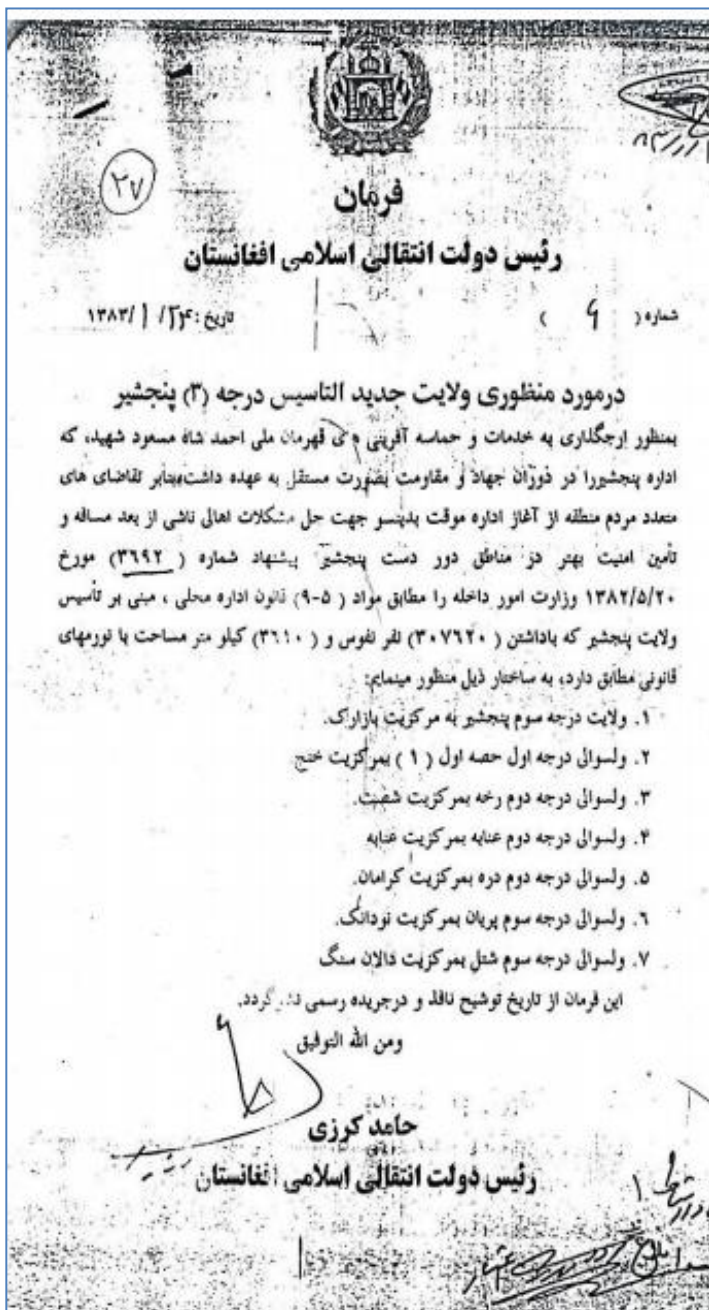 ۲۷
فرمان
رئیس دولت انتقالی اسلامی افغانستان
شماره ( ۶ )
تاریخ: ۲۴/ ۱ /۱۳۸۳
درمورد منظوری ولایت جدید التاسیس درجه (۳) پنجشیر
بمنظور ارجگذاری به خدمات و حماسه آفرینی های قهرمان ملی احمد شاه مسعود شهید، که
اداره پنجشیررا در دوران جهاد و مقاومت بصورت مستقل به عهده داشت،بنابر تقاضای های
متعدد مردم منطقه از آغاز اداره موقت بدینسو جهت حل مشکلات اهالی ناشی از بعد مسافه و
تأمین امنیت بهتر در مناطق دور دست پنجشیر پیشنهاد شماره ( ۳۶۹۲) مورخ
۱۳۸۲/۵/۲۰ وزارت امور داخله را مطابق مواد ( ۵-۹) قانون اداره محلی ، مبنی بر تأسیس
ولایت پنجشیر که باداشتن ( ۳۰۷۶۲۰) نفر نفوس و ( ۳۶۱۰) کیلو متر مساحت با نورمهای
قانونی مطابق دارد، به ساختار ذیل منظور مینمایم:
۱. ولایت درجه سوم پنجشیر به مرکزیت بازارک.
۲. ولسوالی درجه اول حصه اول ( ۱ ) بمرکزیت خنج
۳. ولسوالی درجه دوم رخه بمرکزیت شصت.
۴. ولسوالی درجه دوم عنابه بمرکزیت عنابه
۵. ولسوالی درجه دوم دره بمرکزیت کرامان.
۶. ولسوالی درجه سوم پریان بمرکزیت نودانک.
۷. ولسوالی درجه سوم شتل بمرکزیت دالان سنگ
این فرمان از تاریخ توشیح نافذ و درجریده رسمی نشر گردد.
ومن الله التوفیق
حامد کرزی
رئیس دولت انتقالی اسلامی افغانستان